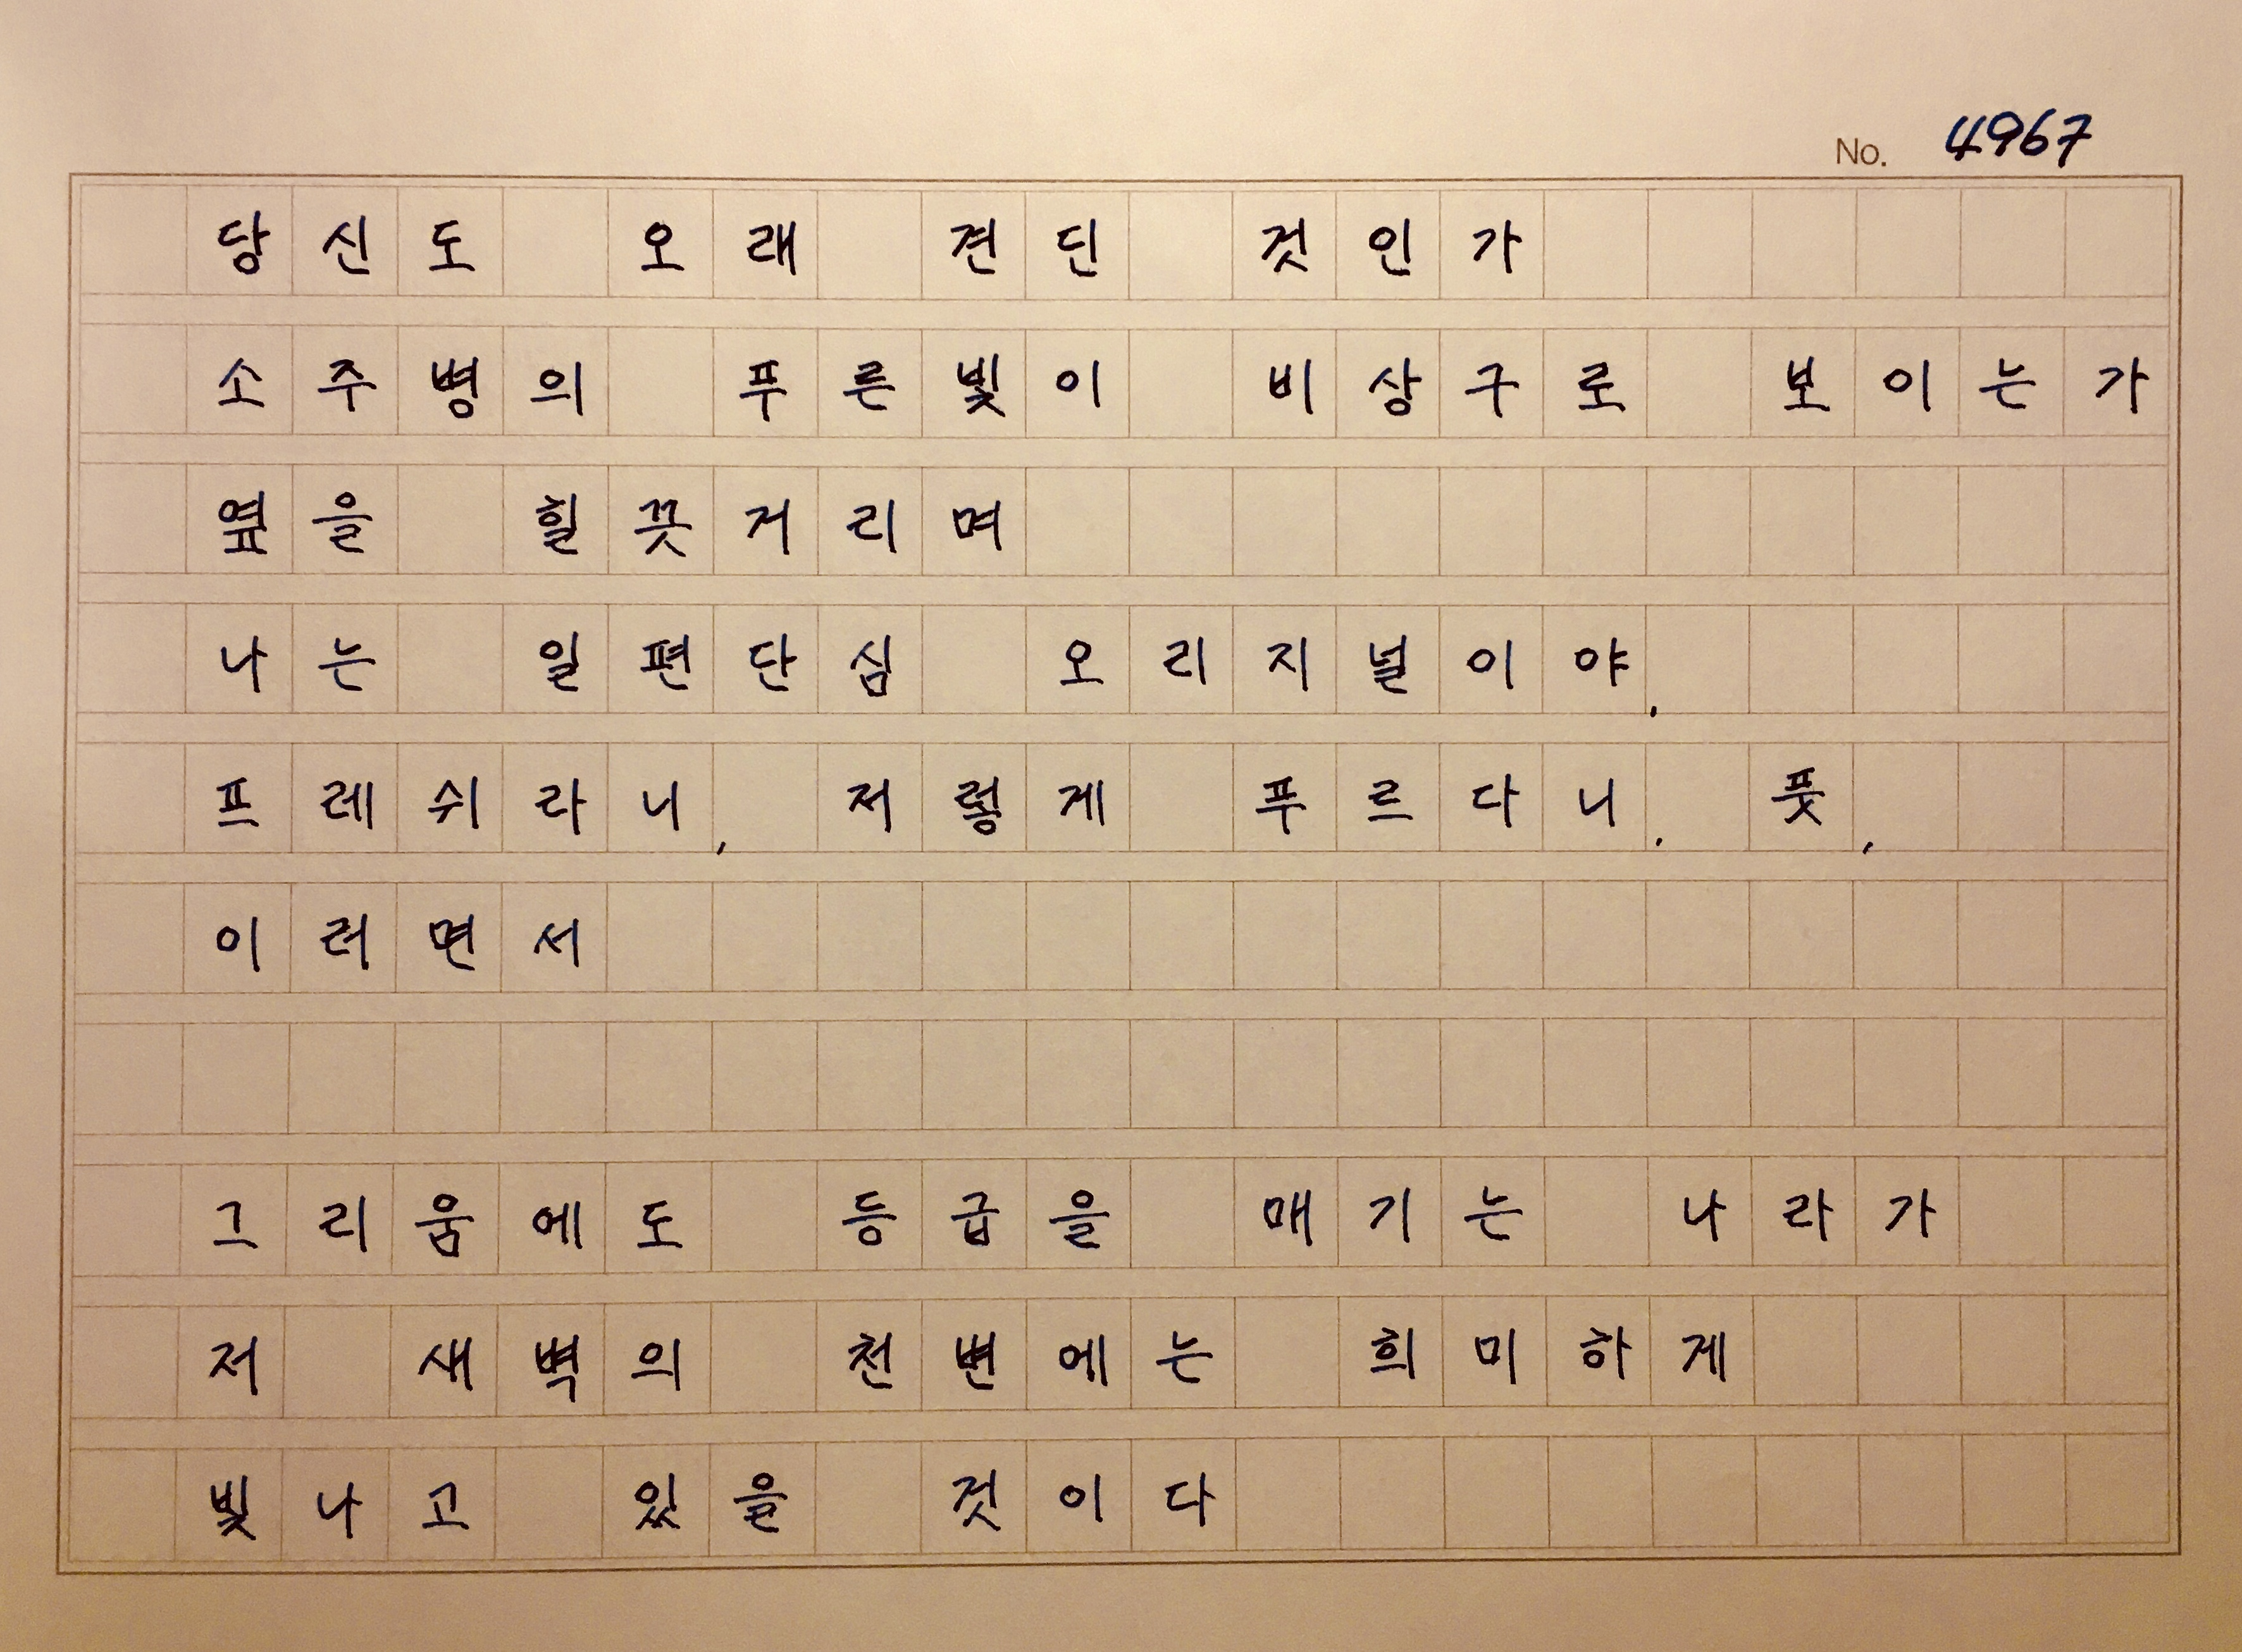 No. 4967
당신도 오래 견딘 것인가
소주병의 푸른빛이 비상구로 보이는가
옆을 힐끗거리며
나는 일편단심 오리지널이야.
프레쉬라니, 저렇게 푸르다니. 풋,
이러면서
그리움에도 등급을 매기는 나라가
저 새벽의 천변에는 희미하게
빛나고 있을 것이다